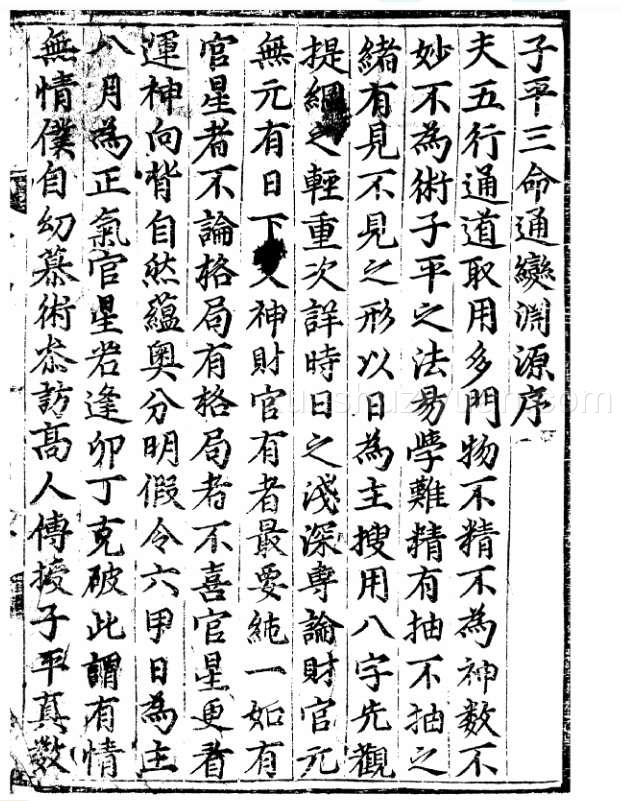 子平三命通變淵源序
夫五行通道取用多門物不精不為神數不
妙不為術子平之法易學難精有抽不抽之
緒有見不見之形以日為主搜用八字先觀
提綱之輕重次詳時日之淺深專論財官元
無元有日下神財官有者最要純一如有
官星者不論格局有格局者不喜官星更看
運神向背自然蘊奧分明假令六甲日為主
八月為正氣官星若逢卯丁克破此謂有情
無情僕自幼慕術忝訪高人傳授子平真数